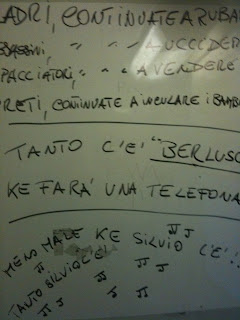 ADRI, CONTINUATE A RUBA
SSASSINI, " " A UCCIDER
PACCIATORI, " " A VENDERE
RETI, CONTINUATE A INCULARE I BAMB
TANTO C'E' BERLUSC
KE FARA' UNA TELEFONA
MENO MALE KE SILVIO C'E'!
TANTO SILVIO C'E'